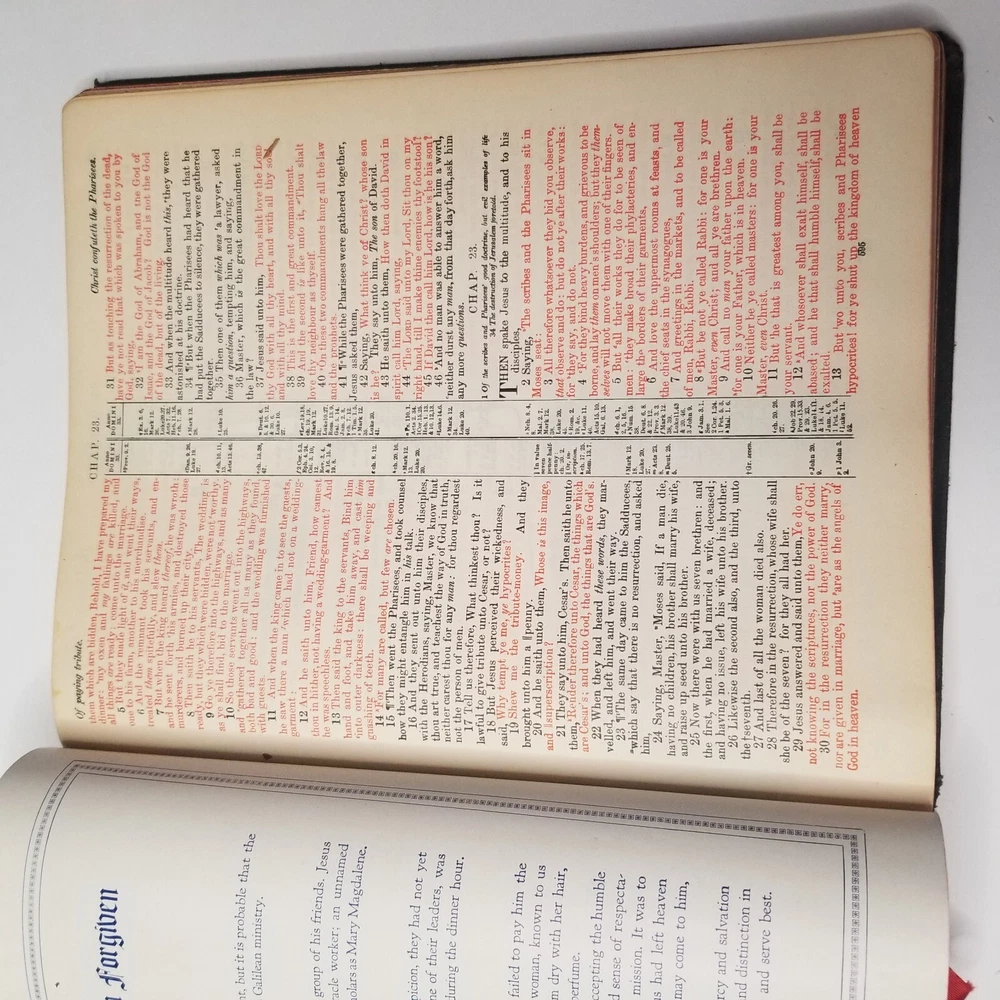 n Forgiven
nt, but it is probable that the
Galilean ministry.
group of his friends. Jesus
racle worker; an unnamed
holars as Mary Magdalene.
picion, they had not yet
ne of their leaders, was
during the dinner hour.
failed to pay him the
woman, known to us
m dry with her hair,
perfume.
ccepting the humble
d sense of respecta-
mission. It was to
as had left heaven
may come to him,
rcy and salvation
d distinction in
and serve best.
Of paying tribute.
CHAP. 23.
Christ confuteth the Pharisees.
them which are bidden, Behold, I have prepared my
dinner: my oxen and my fatlings are killed, and
all things are ready: come unto the marriage.
5 But they made light of it, and went their ways,
one to his farm, another to his merchandise.
6 And the remnant took his servants, and en-
treated them spitefully, and slew them.
7 But when the king heard thereof, he was wroth;
and he sent forth his armies, and destroyed those
murderers, and burned up their city.
8 Then saith he to his servants, The wedding is
ready, but they which were bidden, were not worthy.
9 Go ye therefore into the highways, and as many
as ye shall find, bid to the marriage.
10 So those servants went out into the highways,
and gathered together all as many as they found,
both bad and good: and the wedding was furnished
with guests.
11 And when the king came in to see the guests,
he saw there a man which had not on a wedding-
garment:
12 And he saith unto him, Friend, how camest
thou in hither, not having a wedding-garment? And
he was speechless.
13 Then said the king to the servants, Bind him
hand and foot, and take him away, and cast him
into outer darkness: there shall be weeping and
gnashing of teeth.
14 For many are called, but few are chosen.
15 ¶ Then went the Pharisees, and took counsel
how they might entangle him in his talk.
16 And they sent out unto him their disciples,
with the Herodians, saying, Master, we know that
thou art true, and teachest the way of God in truth,
neither carest thou for any man: for thou regardest
not the person of men.
17 Tell us therefore, What thinkest thou? Is it
lawful to give tribute unto Cesar, or not?
18 But Jesus perceived their wickedness, and
said, Why tempt ye me, ye hypocrites?
19 Shew me the tribute-money. And they
brought unto him a ‖penny.
20 And he saith unto them, Whose is this image,
and ‖superscription?
21 They say unto him, Cesar's. Then saith he unto
them, Render therefore unto Cesar, the things which
are Cesar's; and unto God, the things that are God's.
22 When they had heard these words, they mar-
velled, and left him, and went their way.
23 ¶ The same day came to him the Sadducees,
which say that there is no resurrection, and asked
him,
24 Saying, Master, Moses said, If a man die,
having no children, his brother shall marry his wife,
and raise up seed unto his brother.
25 Now there were with us seven brethren: and
the first, when he had married a wife, deceased;
and having no issue, left his wife unto his brother.
26 Likewise the second also, and the third, unto
the †seventh.
27 And last of all the woman died also.
28 Therefore in the resurrection, whose wife shall
she be of the seven? for they all had her.
29 Jesus answered and said unto them, Ye do err,
not knowing the scriptures, nor the power of God.
30 For in the resurrection they neither marry,
nor are given in marriage, but are as the angels of
God in heaven.
31 But as touching the resurrection of the dead,
have ye not read that which was spoken to you by
God, saying,
32 I am the God of Abraham, and the God of
Isaac, and the God of Jacob? God is not the God
of the dead, but of the living.
33 And when the multitude heard this, they were
astonished at his doctrine.
34 ¶ But when the Pharisees had heard that he
had put the Sadducees to silence, they were gathered
together.
35 Then one of them which was a lawyer, asked
him a question, tempting him, and saying,
36 Master, which is the great commandment in
the law?
37 Jesus said unto him, Thou shalt love the LORD
thy God with all thy heart, and with all thy soul,
and with all thy mind.
38 This is the first and great commandment.
39 And the second is like unto it, Thou shalt
love thy neighbour as thyself.
40 On these two commandments hang all the law
and the prophets.
41 ¶ While the Pharisees were gathered together,
Jesus asked them,
42 Saying, What think ye of Christ? whose son
is he? They say unto him, The son of David.
43 He saith unto them, How then doth David in
spirit call him Lord, saying,
44 The LORD said unto my Lord, Sit thou on my
right hand, till I make thine enemies thy footstool?
45 If David then call him Lord, how is he his son?
46 And no man was able to answer him a word,
neither durst any man, from that day forth, ask him
any more questions.
CHAP. 23.
1 Of the scribes and Pharisees' good doctrine, but evil examples of life
34 The destruction of Jerusalem foretold.
THEN spake Jesus to the multitude, and to his
disciples,
2 Saying, The scribes and the Pharisees sit in
Moses' seat:
3 All therefore whatsoever they bid you observe,
that observe and do; but do not ye after their works:
for they say, and do not.
4 For they bind heavy burdens, and grievous to be
borne, and lay them on men's shoulders; but they them-
selves will not move them with one of their fingers.
5 But all their works they do for to be seen of
men: they make broad their phylacteries, and en-
large the borders of their garments,
6 And love the uppermost rooms at feasts, and
the chief seats in the synagogues,
7 And greetings in the markets, and to be called
of men, Rabbi, Rabbi.
8 But be not ye called Rabbi: for one is your
Master, even Christ; and all ye are brethren.
9 And call no man your father upon the earth:
for one is your Father, which is in heaven.
10 Neither be ye called masters: for one is your
Master, even Christ.
11 But he that is greatest among you, shall be
your servant.
12 And whosoever shall exalt himself, shall be
abased; and he that shall humble himself, shall be
exalted.
13 ¶ But wo unto you, scribes and Pharisees
hypocrites! for ye shut up the kingdom of heaven
695